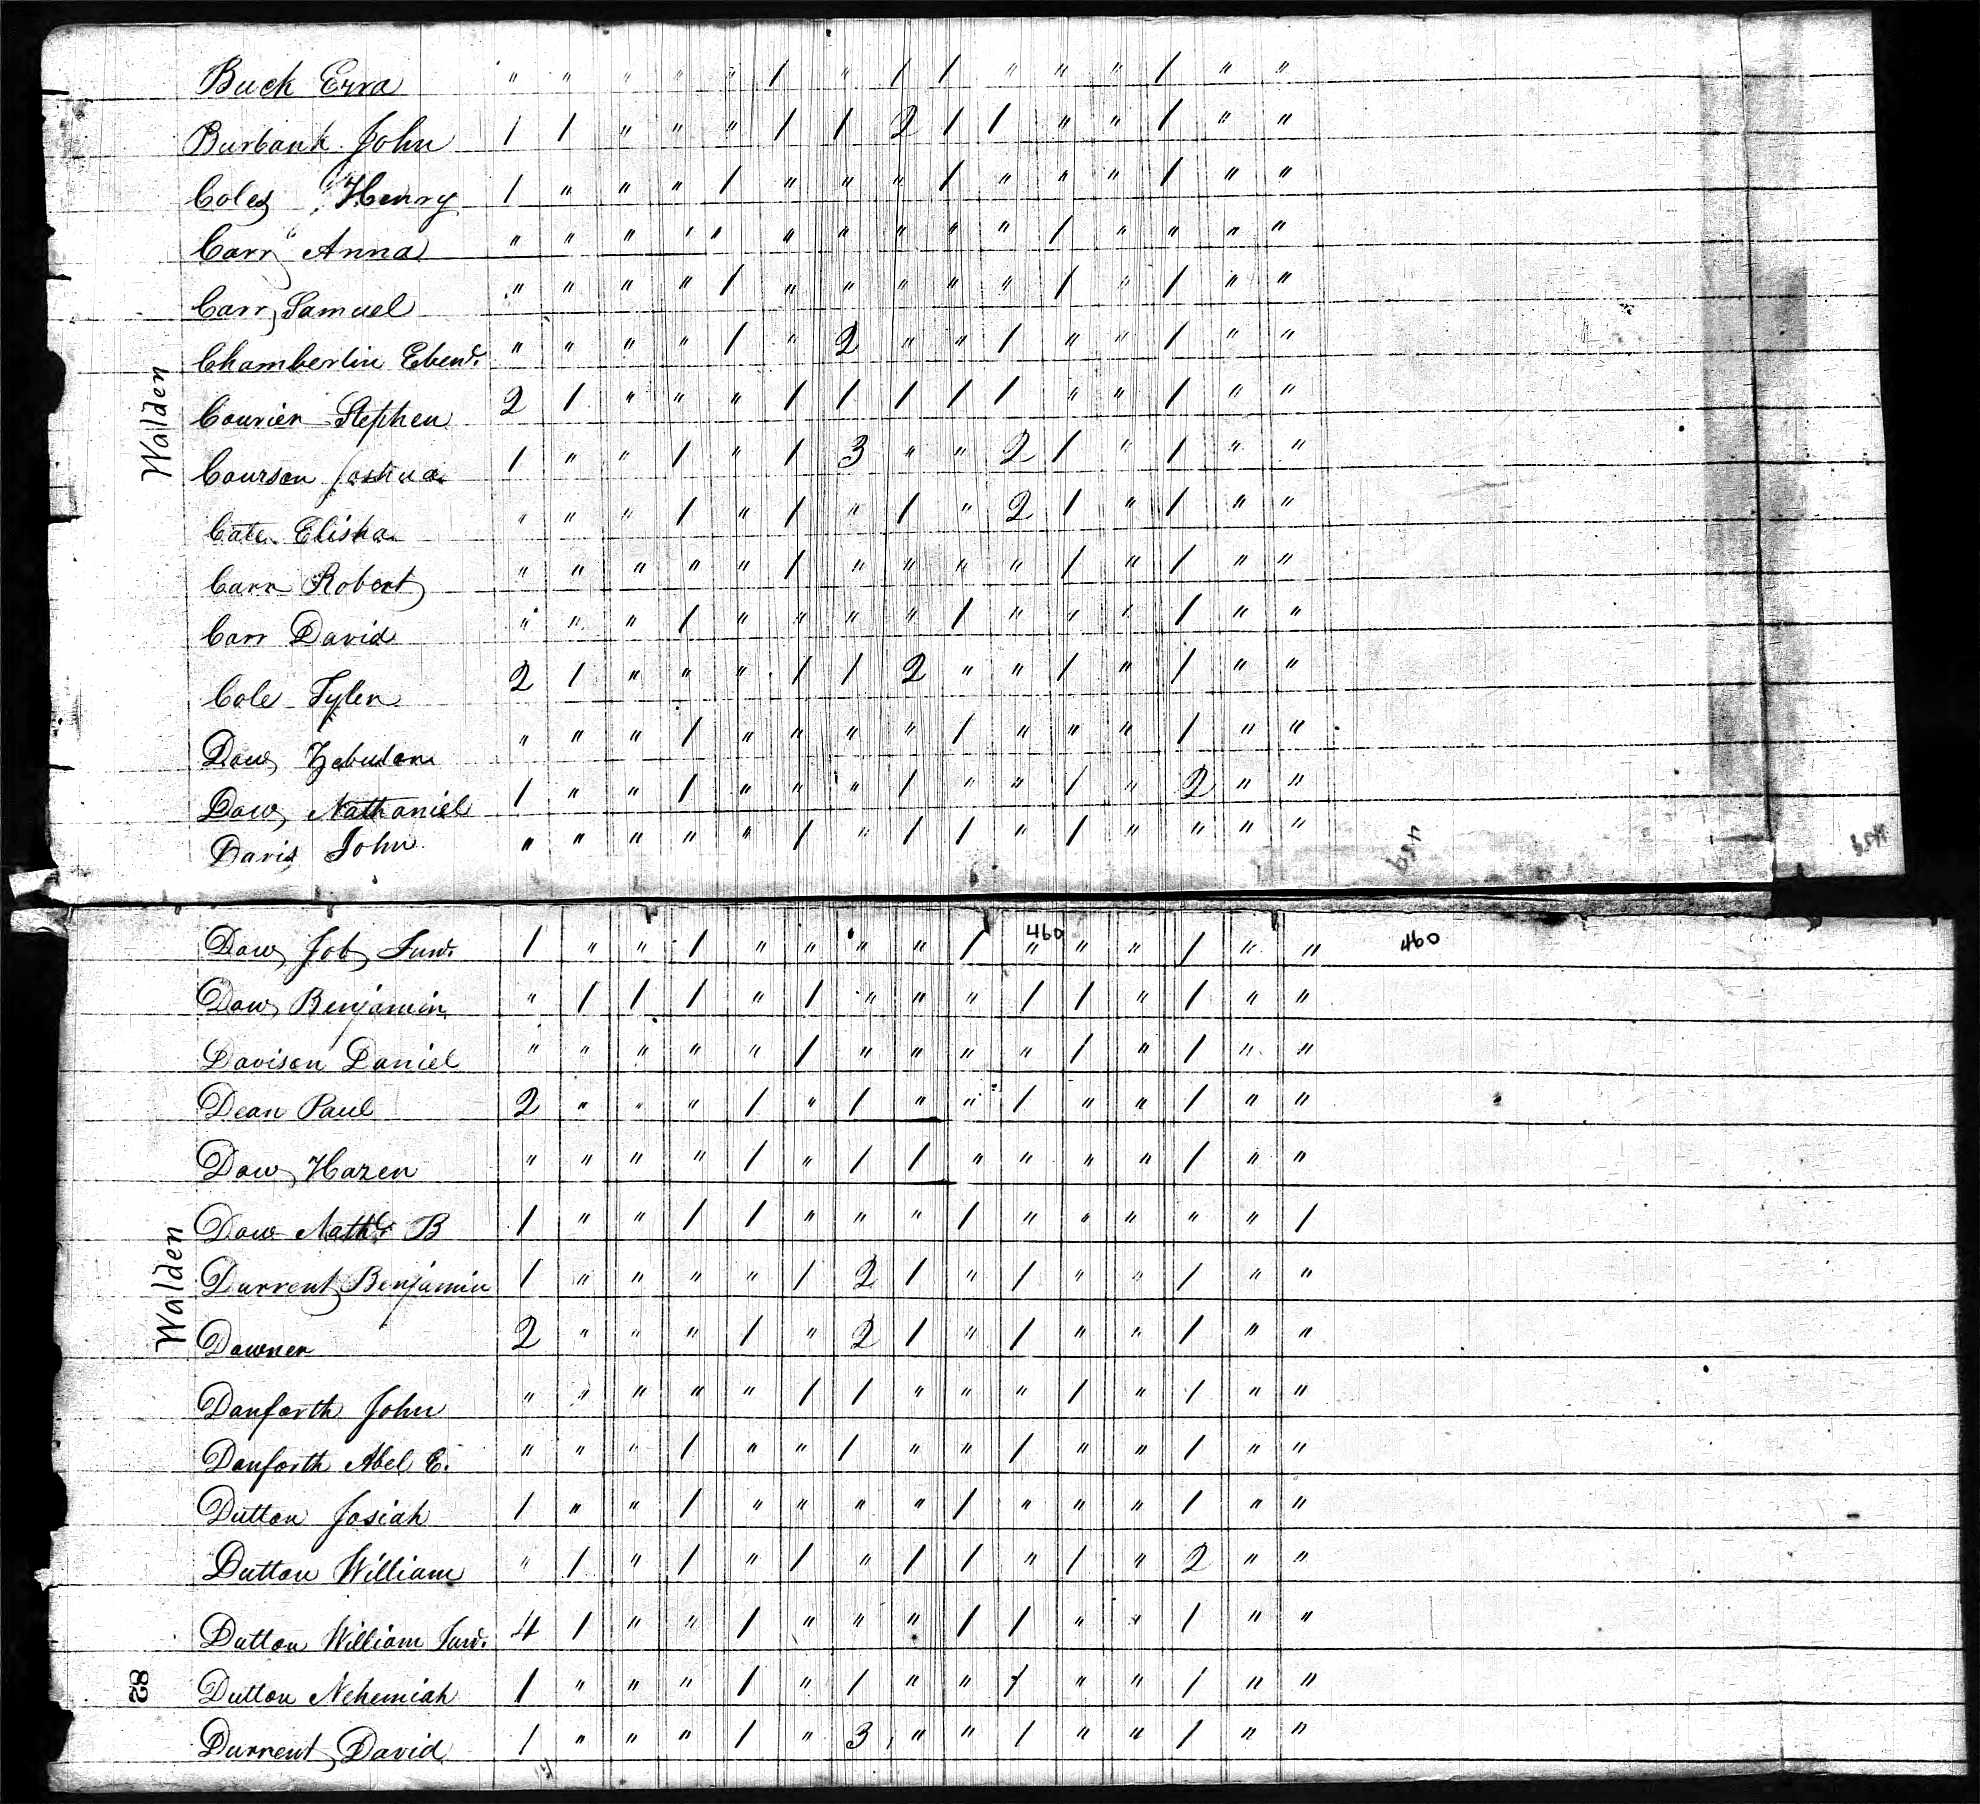 Buck Ezra " " " " " 1 " 1 1 " " " 1 " "
Burbank John 1 1 " " " 1 1 2 1 1 " " 1 " "
Coles Henry 1 " " " 1 " " " 1 " " " 1 " "
Carr Anna " " " " " " " " " " 1 " " " "
Carr Samuel " " " " 1 " " " " " 1 " 1 " "
Chamberlin Ebenr. " " " " 1 " 2 " " 1 " " 1 " "
Courier Stephen 2 1 " " " 1 1 1 1 1 " " 1 " "
Courson Joshua 1 " " 1 " 1 3 " " 2 1 " 1 " "
Cate Elisha " " " 1 " 1 " 1 " 2 1 " 1 " "
Carr Robert " " " " " 1 " " " " 1 " 1 " "
Carr David " " " 1 " " " " 1 " " " 1 " "
Cole Tyler 2 1 " " " 1 1 2 " " 1 " 1 " "
Dow Zebulon " " " 1 " " " " 1 " " " 1 " "
Dow Nathaniel 1 " " 1 " " " 1 " " 1 " 2 " "
Davis John " " " " " 1 " 1 1 " 1 " " " "
Walden
459
460
460
Dow Job Junr. 1 " " 1 " " " " 1 " " " 1 " "
Dow Benjamin " 1 1 1 " 1 " " " 1 1 " 1 " "
Davison Daniel " " " " " 1 " " " " 1 " 1 " "
Dean Paul 2 " " " 1 " 1 " " 1 " " 1 " "
Dow Hazen " " " " 1 " 1 1 " " " " 1 " "
Dow Nathl B 1 " " 1 1 " " " 1 " " " " " 1
Durrent Benjamin 1 " " " " 1 2 1 " 1 " " 1 " "
Downer 2 " " " 1 " 2 1 " 1 " " 1 " "
Danforth John " " " " " 1 1 " " " 1 " 1 " "
Danforth Abel E. " " " 1 " " 1 " " 1 " " 1 " "
Dutton Josiah 1 " " 1 " " " " 1 " " " 1 " "
Dutton William " 1 " 1 " 1 " 1 1 " 1 " 2 " "
Dutton William Junr. 4 1 " " 1 " " " 1 1 " " 1 " "
Dutton Nehemiah 1 " " " 1 " 1 " " 1 " " 1 " "
Durrent David 1 " " " 1 " 3 " " 1 " " 1 " "
Walden
82